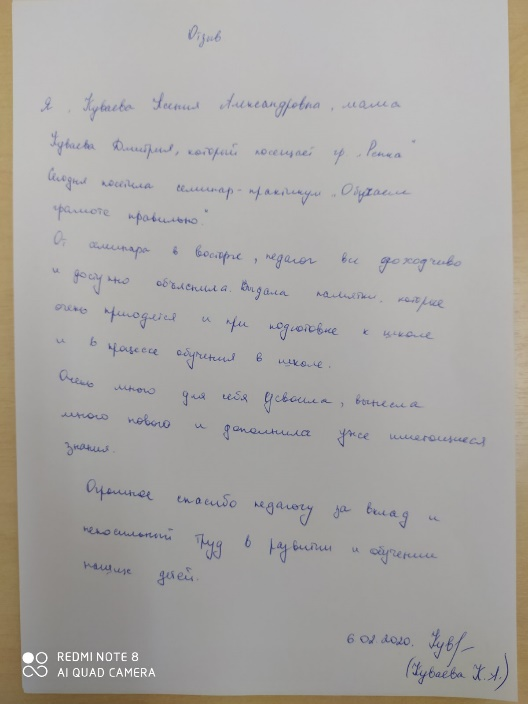 Отзыв
Я, Куваева Ксения Александровна, мама
Куваева Дмитрия, который посещает гр. „Репка"
Сегодня посетила семинар-практикум „Обучаем
грамоте правильно."
От семинара в восторге, педагог все доходчиво
и доступно объяснила. Выдала памятки, которые
очень пригодятся и при подготовке к школе
и в процессе обучения в школе.
Очень много для себя усвоила, вынесла
много нового и дополнила уже имеющиеся
знания.
Огромное спасибо педагогу за вклад и
непосильный труд в развитии и обучении
наших детей.
6.02.2020. Кув
(Куваева К.А.)
REDMI NOTE 8
AI QUAD CAMERA